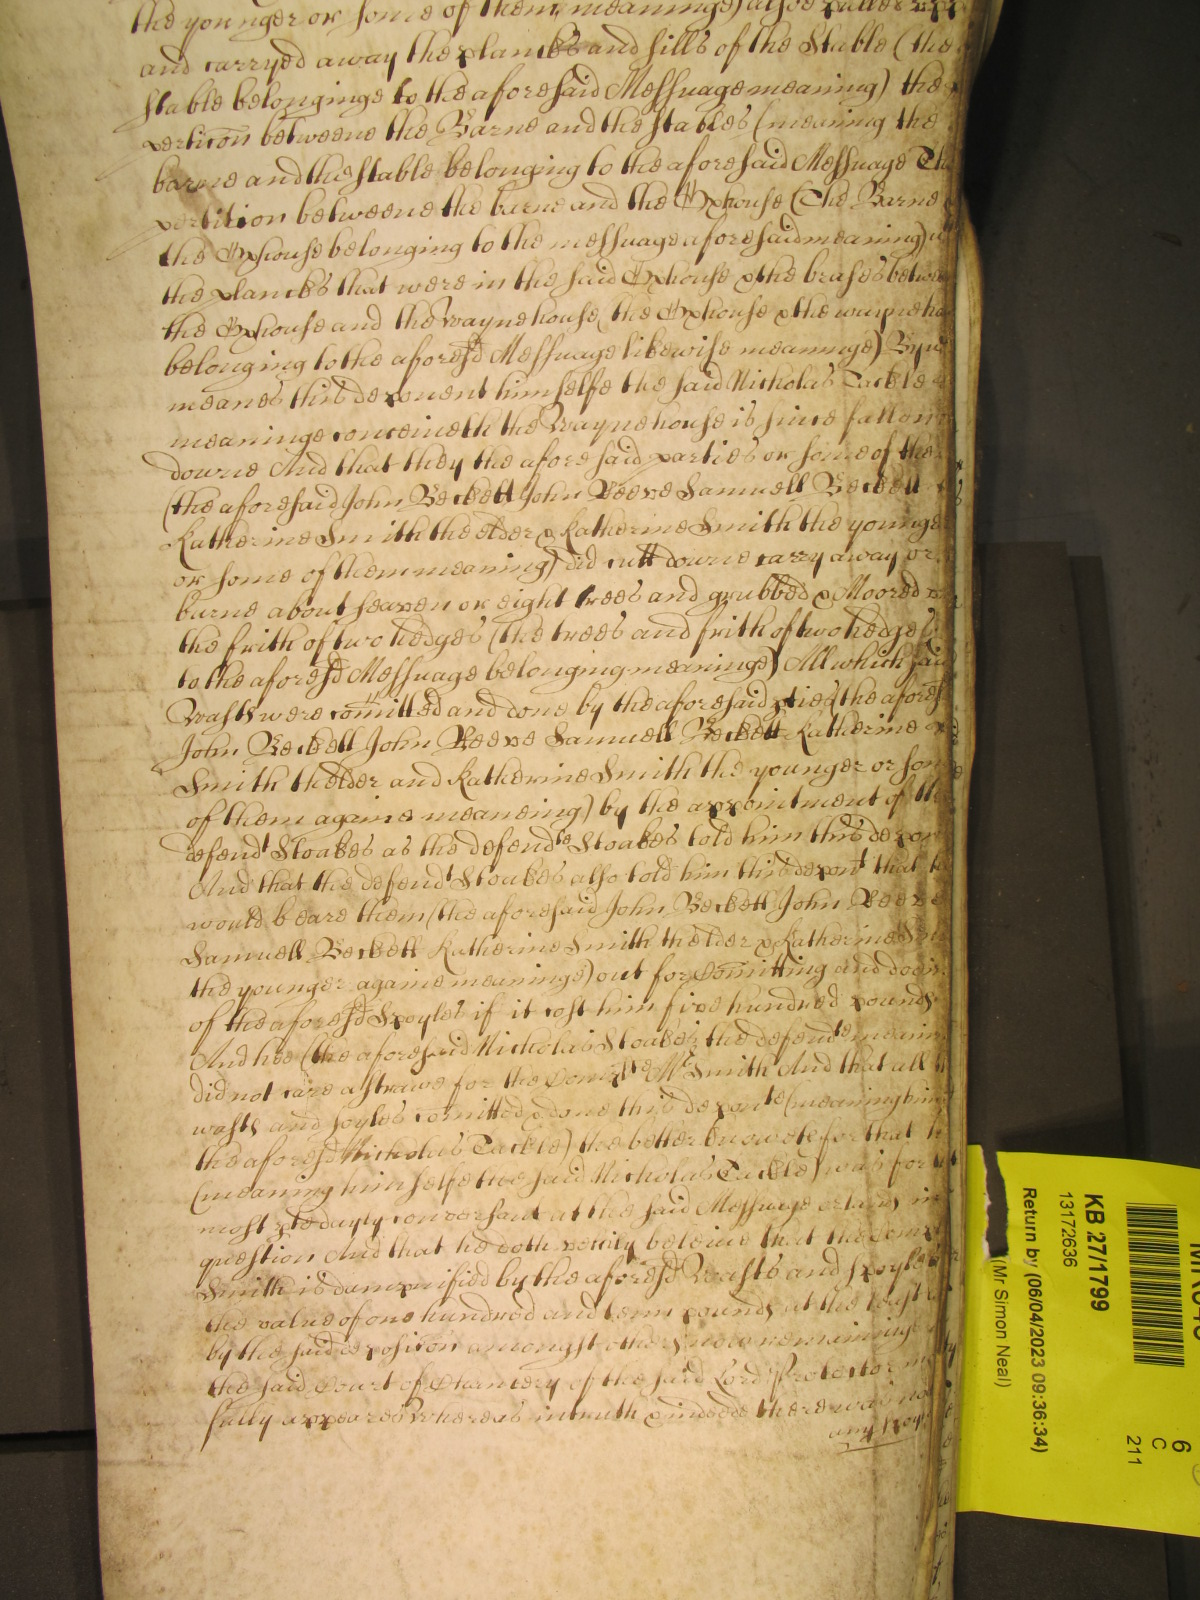 the younger or some of them meaninge) alsoe
and carryed away the planckes and sills of the Stable (the
stable belonginge to the aforesaid Messuage meaning) the
perticon betweene the Barne and the stables (meaning the
barne and the stable belonging to the aforesaid Messuage The
pertition betweene the barne and the Oxhouse (The Barne
the Oxhouse belonging to the messuage aforesaid meaning)
the planckes that were in the said Oxhouse & the brases betwe
the Oxhouse and the Waynehouse (the Oxhouse & the
belonging to the aforesd Messuage likewise meaninge)
meanes this deponent himselfe the said Nicholas Tackle
meaninge conceiveth the Waynehouse is since fallen
downe And that they the aforesaid parties or some of the
(the aforesaid John Beckett John Reeve Samuell Beckett
Katherine Smith the elder & Katherine Smith the younge
or some of them meaning) did cutt downe carry away or
burne about seaven or eight trees and grubbed & Moored
the frith of two hedges (the trees and frith of two hedges
to the aforesd Messuage belonging meaninge) All which said
Wasts were comitted and done by the aforesaid pties (the aforesd
John Beckett John Reeve Samuell Beckett Katherine
Smith thelder and Katherine Smith the younger or som
of them againe meaneing) by the appointment of the
defendt Stoakes as the defendte Stoakes told him this depon
And that the defendt Stoakes also told him this depont that
would beare them (the aforesaid John Beckett John Reeve
Samuell Beckett Katherine Smith thelder & Katherine Sm
the younger againe meaninge) out for Comitting and doein
of the aforesd Spoyles if it cost him five hundred pounds
And hee (the aforesaid Nicholas Stoakes the defendte meanin
did not care a strawe for the Complte Mr Smith And that all
wasts and spoyles comitted & done this deponte (meaning him
the aforesd Nicholas Tackle) the better knoweth for that h
(meaning himselfe the said Nicholas Tackle) was for
most pte dayly conversant at the said Messuage & lands in
question And that he doth verily beleive that the Comp
Smith is dampnified by the aforesd Wasts and spoyles
the value of one hundred and tenn pounds at the least
by the said deposicon amongst others now remaininge
the said Court of Chancery of the said Lord Protector
fully appeares Whereas in truth & indeede there was no
any
KB 27/1799
13172636
Return by (06/04/2023 09:36:34)
(Mr Simon Neal)
6
C
211